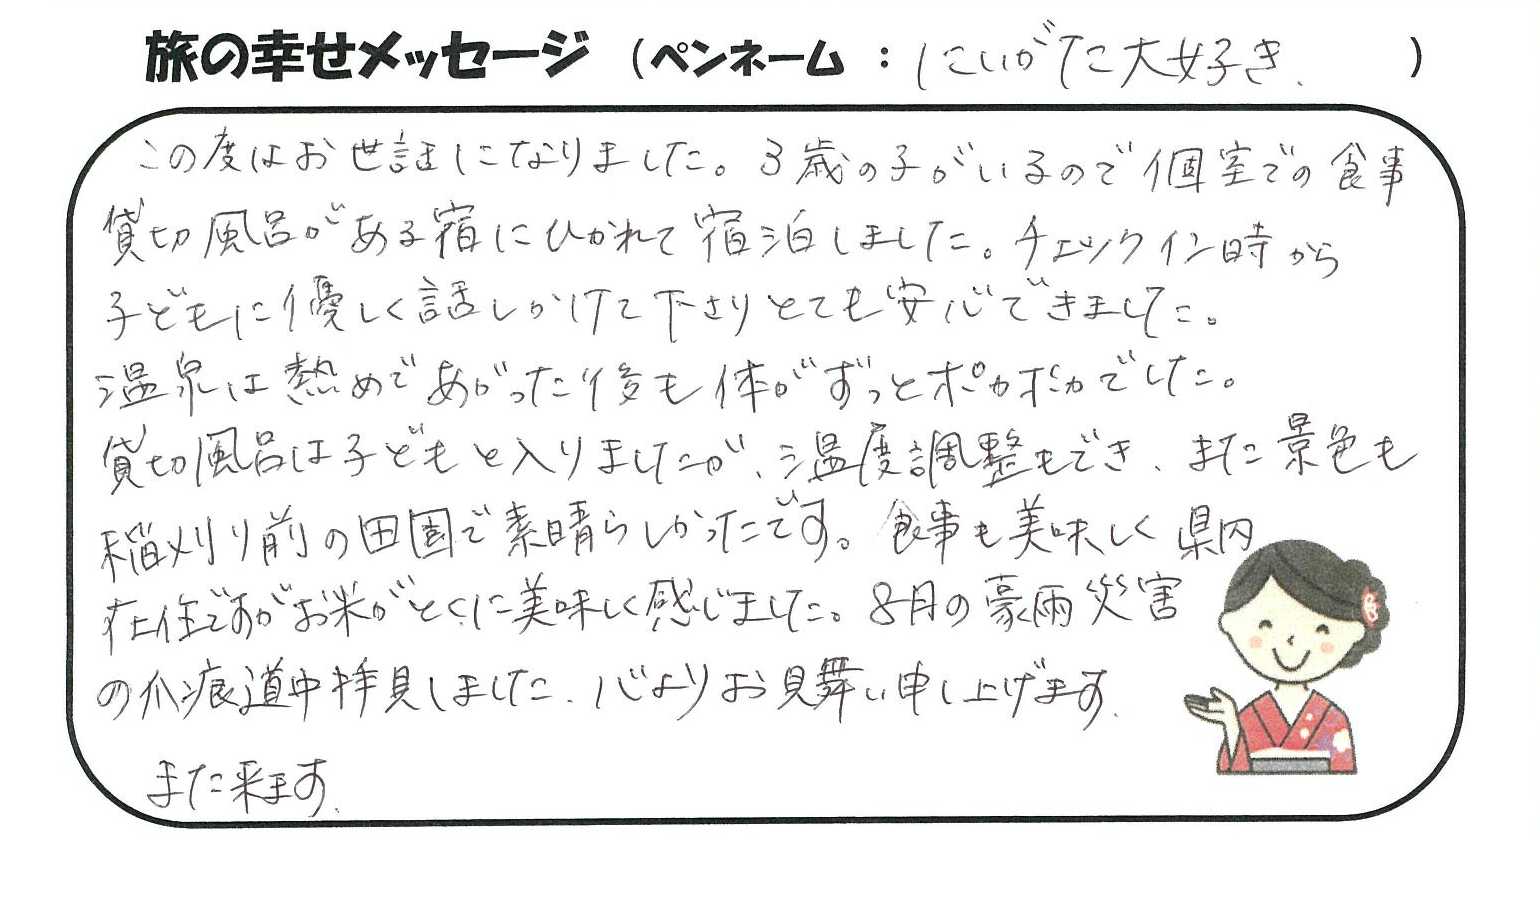 旅の幸せメッセージ (ペンネーム : にいがた大好き. )
この度はお世話になりました。3歳の子がいるので個室での食事
貸切風呂がある宿にひかれて宿泊しました。チェックイン時から
子どもに優しく話しかけて下さりとても安心できました。
温泉は熱めであがった後も体がずっとポカポカでした。
貸切風呂は子どもと入りましたが、温度調整もでき、また景色も
稲刈り前の田園で素晴らしかったです。食事も美味しく県内
在住ですがお米がとくに美味しく感じました。8月の豪雨災害
の爪痕道中拝見しました、心よりお見舞い申し上げます.
また来ます.